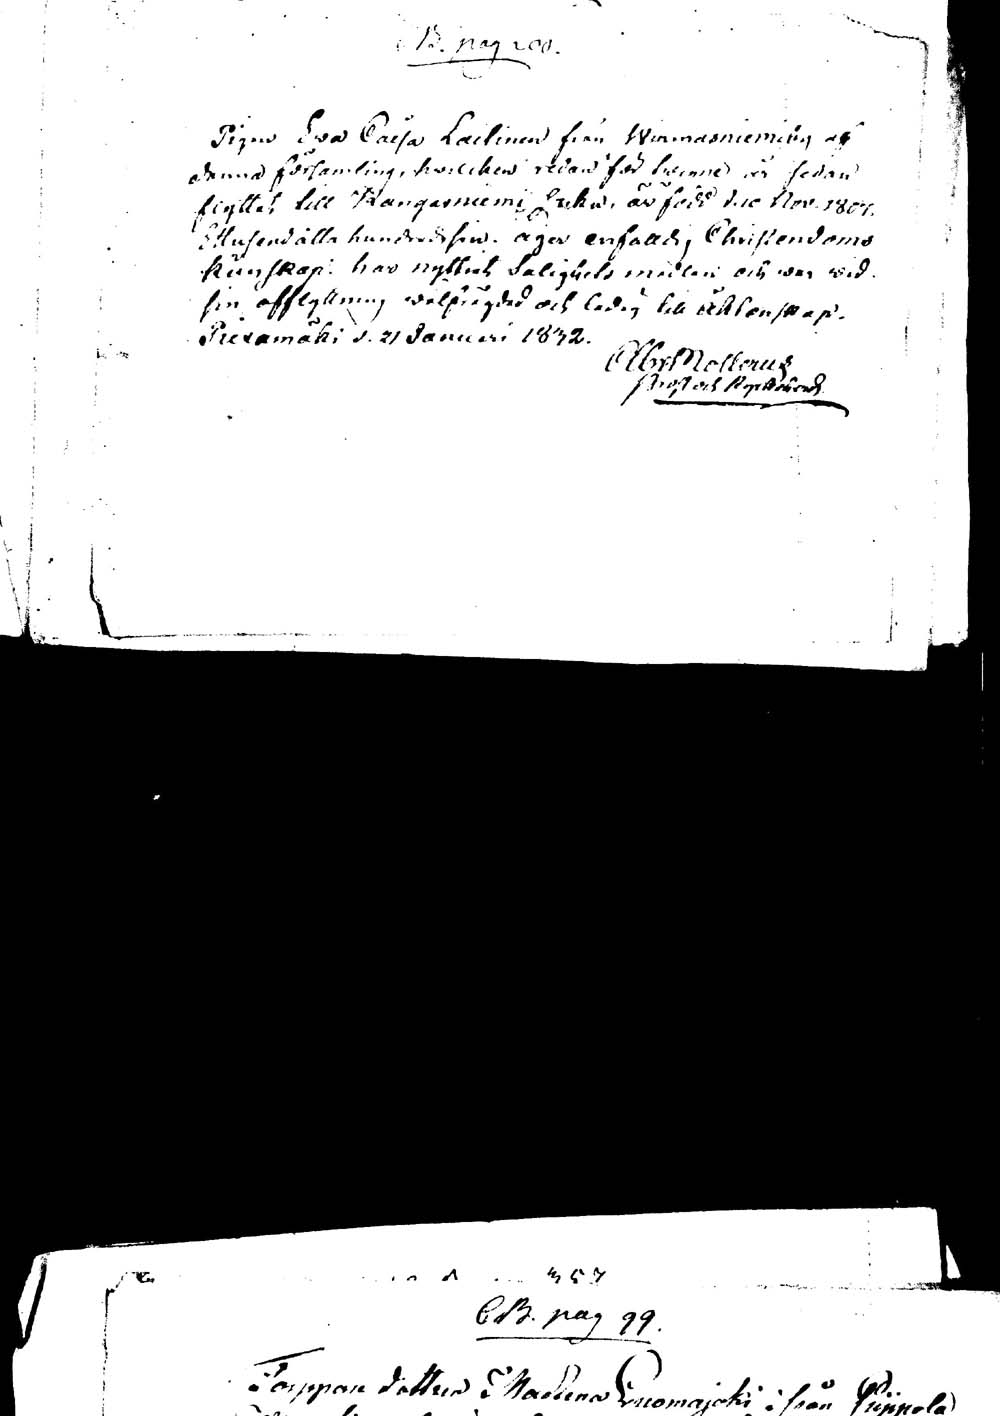 CB. pag 200.
Pigan Eva Caisa Laitinen från Wirmasniemi by af
denna församling, hvilken redan för henne är sedan
flyttat till Kangasniemi Sokn, är född d. 10 Nov. 1807.
Ettusend åtta hundrade sju. äger enfaldig Christendoms
kunskap. har nyttjat Salighets medlen och war wid
sin afflyttning wälfrägdad och ledig till äktenskap.
Piexamäki d. 21 Januari 1832.
Alb: Molterus
Prost och Kyrkoherde
357
CB. pag 99.
Torppare dottren Madlena Enomajoki ifrån Piippola